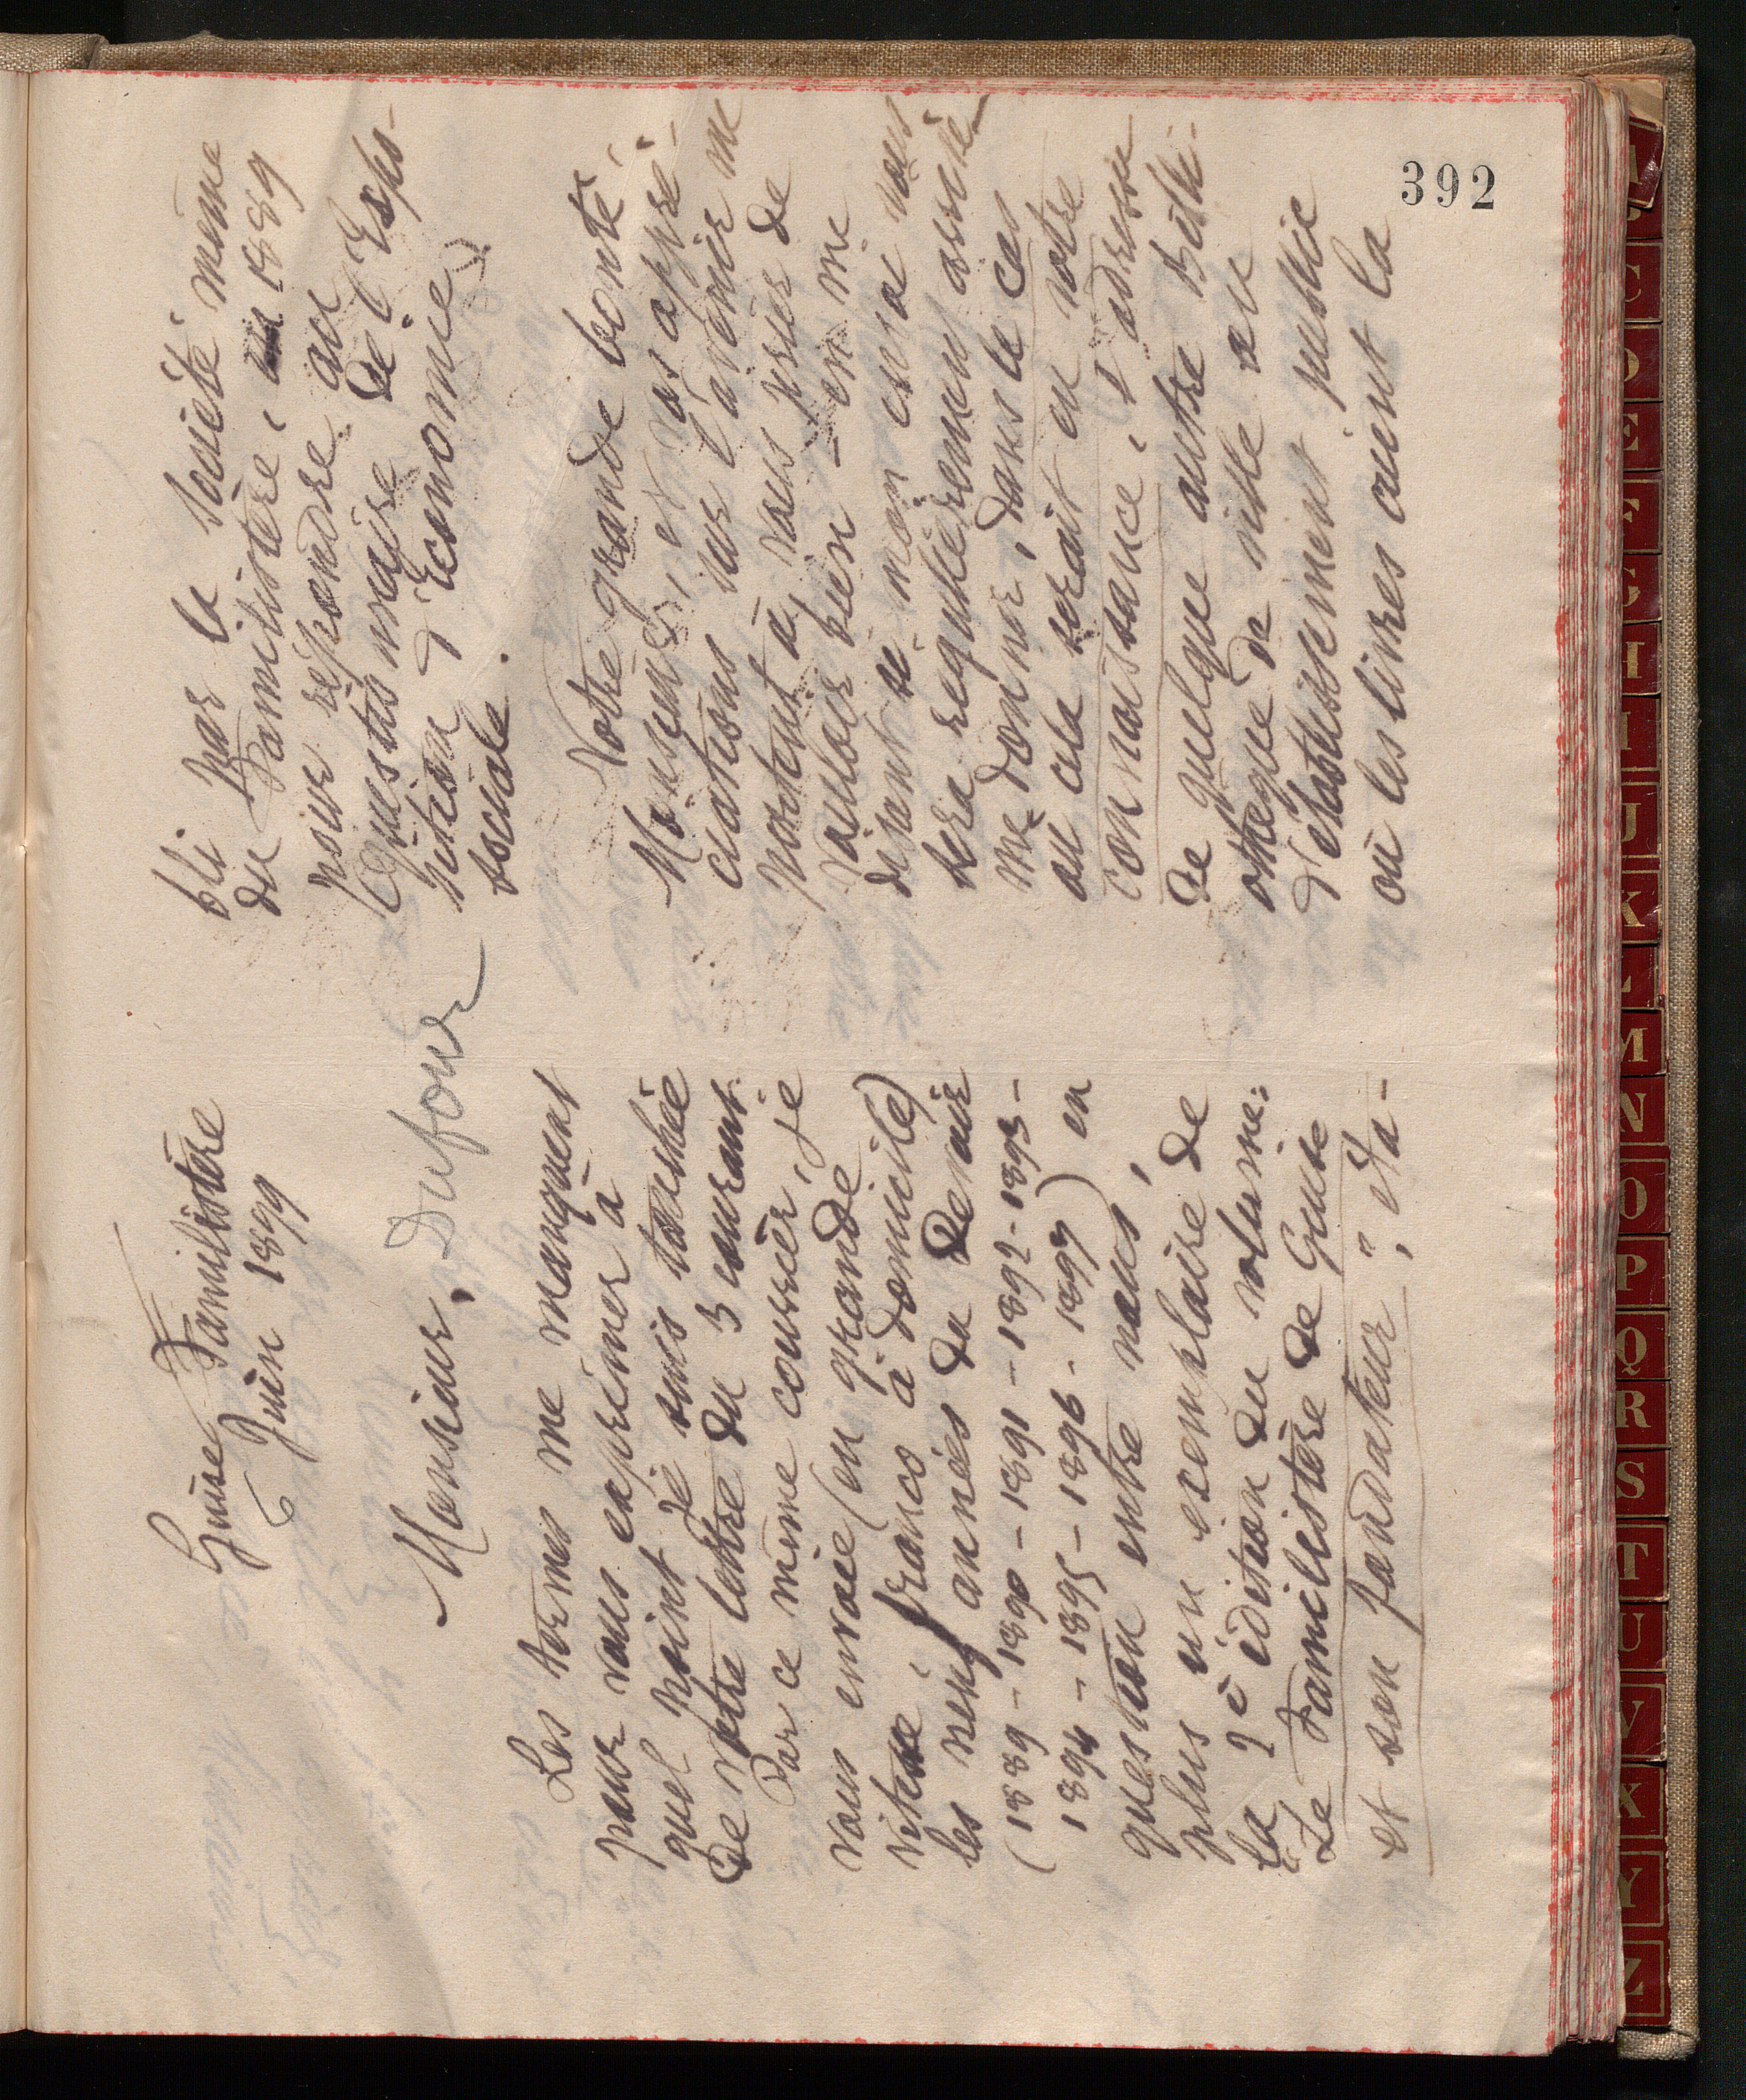 Guise Familistère
6 Juin 1899
Monsieur, Dufour
Les termes me manquent
pour vous exprimer à
quel point je suis touchée
de votre lettre du 3 courant.
Par ce même courrier, je
vous envoie (en grande
vitesse, franco à domicile)
les neuf années du Devoir
(1889 - 1890 - 1891 - 1892 - 1893 -
1894 - 1895 - 1896 - 1897) en
question entre nous,
plus un exemplaire de
la 2e édition du volume:
"Le Familistère de Guise
et son fondateur", éta-
bli par la Société même
du Familistère, en 1889
pour répondre au
Questionnaire de l'Expo-
sition d'Economie
sociale.
Votre grande bonté
Monsieur, et vos appré-
ciations sur l'avenir me
portent à vous prier de
vouloir bien - en me
disant si mon envoi vous
sera régulièrement arrivé
me donner, dans le cas
où cela serait en votre
connaissance, l'adresse
de quelque autre Bibli-
othèque de ville ou
d'établissement public
où les livres ont la
392
A
C
D
E
F
G
H
I
J
K
L
M
N
O
P
Q
R
S
T
U
V
X
Y
Z